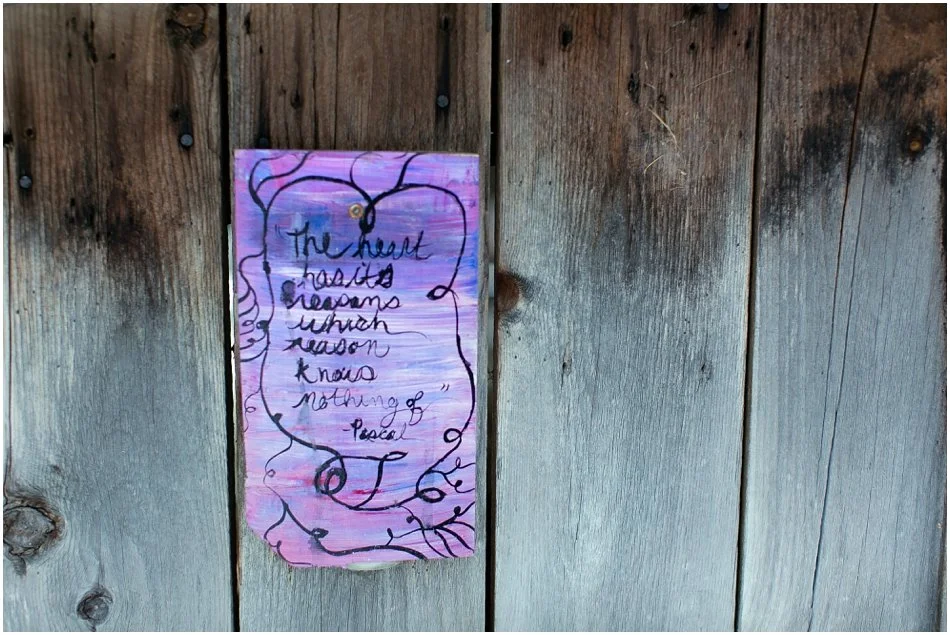 "The heart
has its
reasons
which
reason
knows
nothing of"
-Pascal